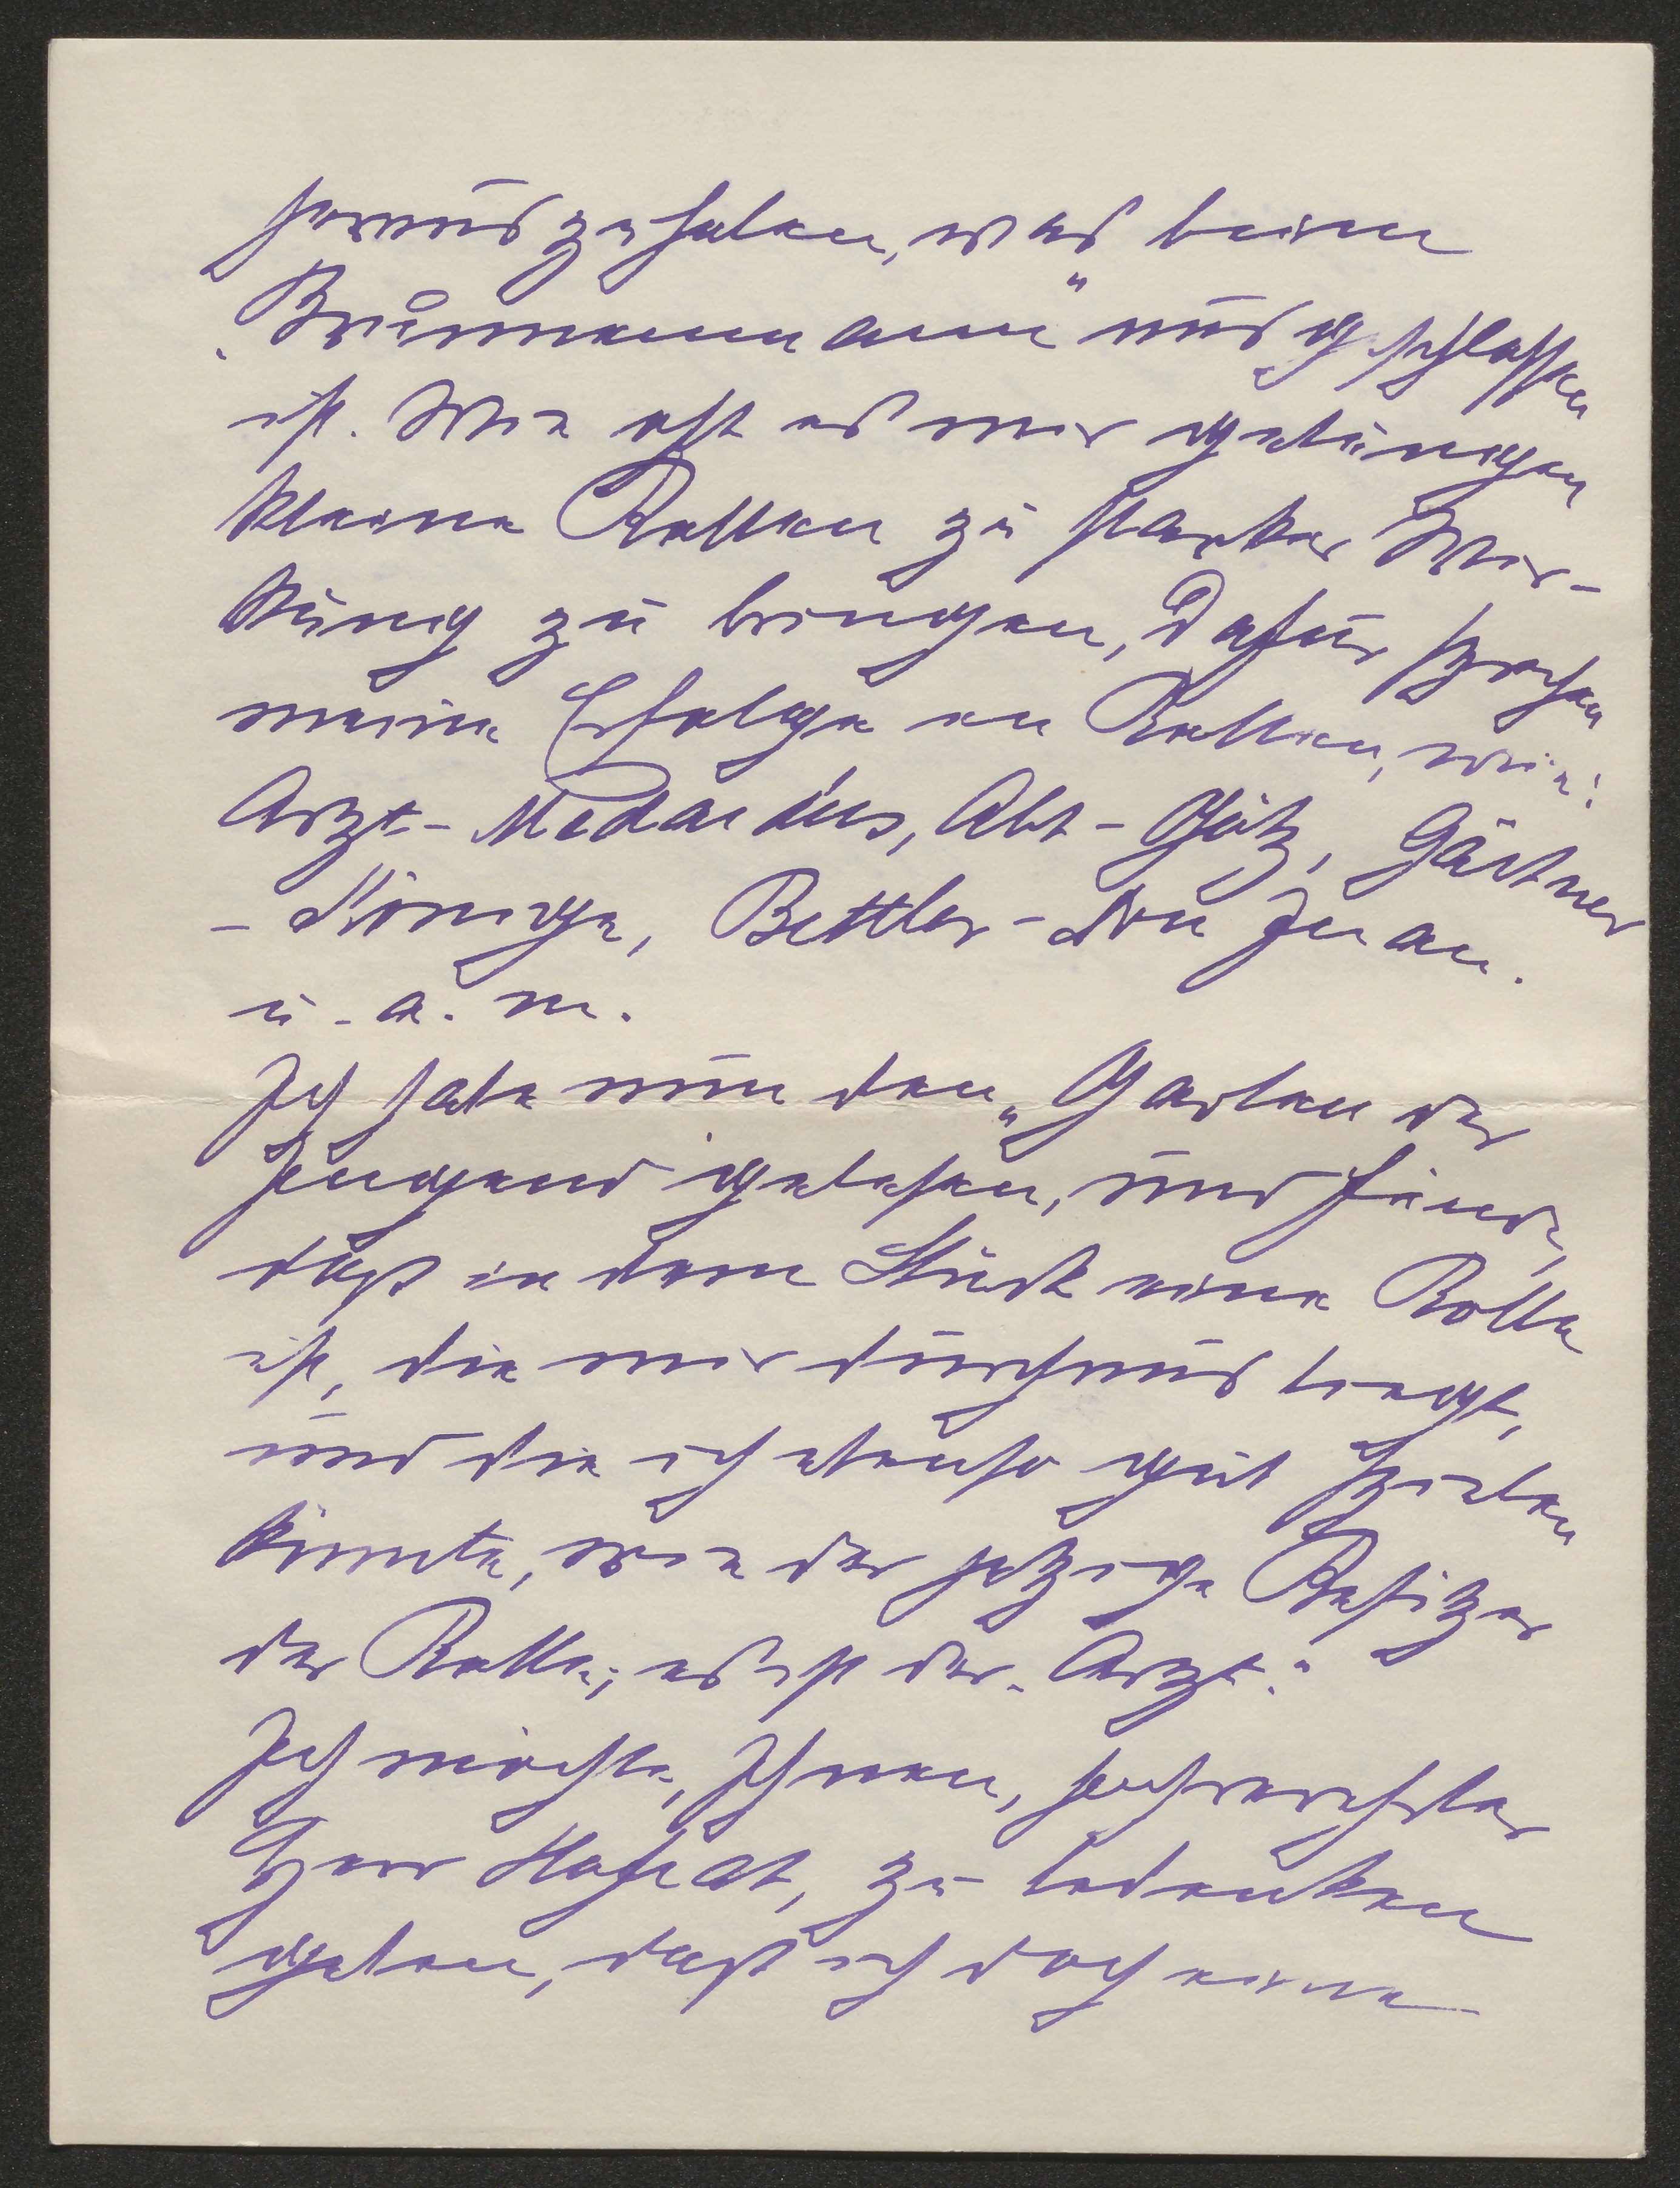 herauszuholen, was beim
„Brunnenmann“ ausgeschlossen
ist. Wie oft es mir gelungen
kleine Rollen zu starker Wir-
kung zu bringen, dafür sprechen
meine Erfolge in Rollen, wie:
Arzt-Medardus, Abt-Götz, Gärtner
-Könige, Bettler-Don Juan.
u. a. m.
Ich habe nun den „Garten der
Jugend“ gelesen, und finde,
daß in dem Stück eine Rolle
ist, die mir durchaus liegt,
und die ich ebenso gut spielen
könnte, wie der jetzige Besitzer
der Rolle; es ist der „Arzt“.
Ich möchte, Ihnen, hochverehrter
Herr Hofrat, zu bedenken
geben, daß ich doch eine